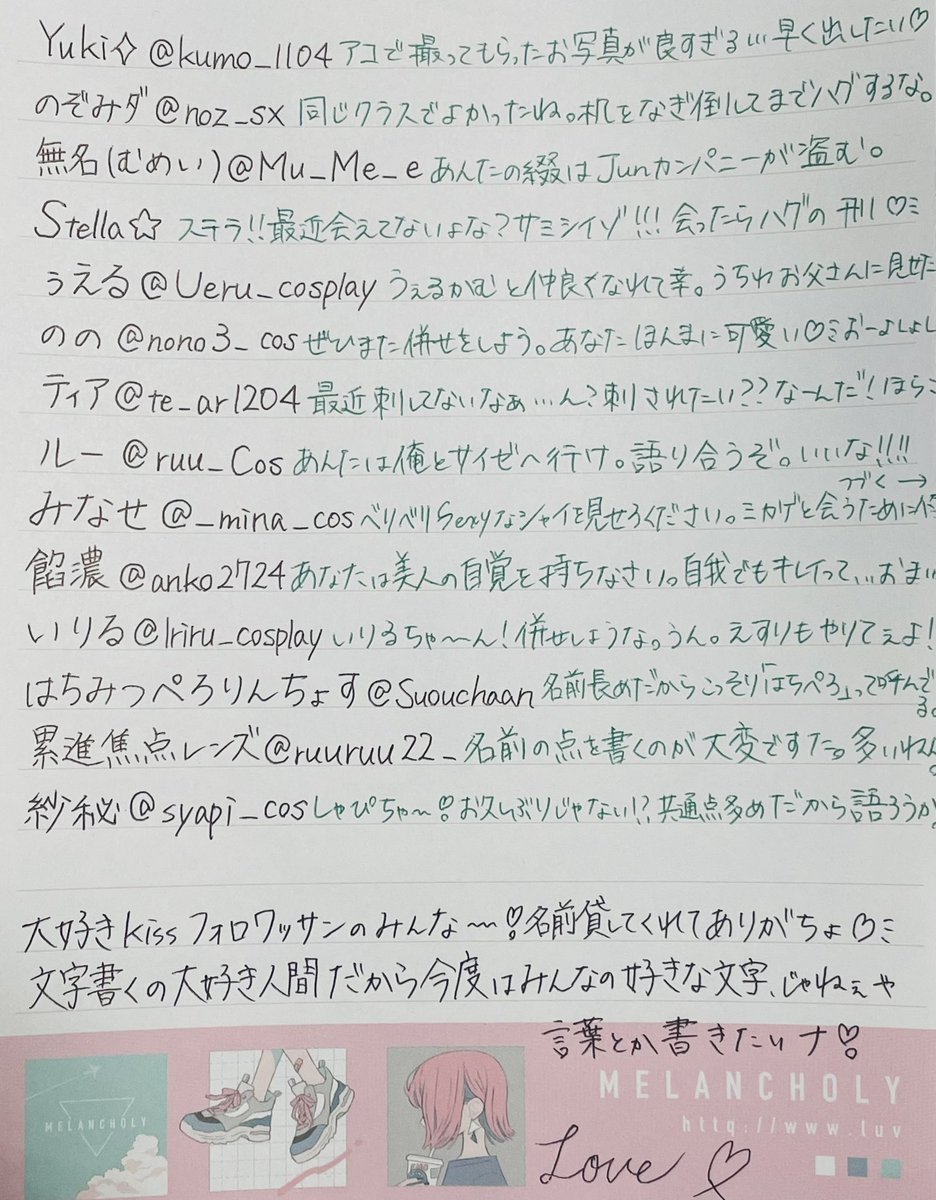 Yuki✧ @kumo_1104 アコで撮ってもらったお写真が良すぎる…早く出したい♡
のぞみダ @noz_sx 同じクラスでよかったね。机をなぎ倒してまでハグするな。
無名(むめい)@Mu_Me_e あんたの綴はJunカンパニーが盗む。
Stella☆ ステラ!!最近会えてないよな?サミシイゾ!!!会ったらハグの刑♡ミ
うえる@Ueru_cosplay うぇるかむと仲良くなれて幸。うちわお父さんに見せた
のの @nono3_cos ぜひまた併せをしよう。あなたほんまに可愛い♡ミおーよしよし
ティア@te_ar1204 最近刺してないなぁ…ん?刺されたい??なーんだ!ほら
ルー @ruu_Cos あんたは俺とサイゼへ行け。語り合うぞ。いいな!!!!
つづく→
みなせ @_mina_cos ベリベリSexyなシャイを見せろください。ミカゲと会うために
餡濃 @anko2724 あなたは美人の自覚を持ちなさい。自我でもキレイって…おまい
いりる@Iriru_cosplay いりるちゃ〜ん!併せしような。うん。えすりもやりてぇよ!
はちみつぺろりんちょす@Suouchaan 名前長めだからこっそり「はちぺろ」って呼んで
る。
累進焦点レンズ@ruuruu22_ 名前の点を書くのが大変ですた。多いねん。
紗秘@syapi_cos しゃぴちゃ〜♡お久しぶりじゃない!?共通点多めだから語ろうか。
大好きkissフォロワッサンのみんな〜♡名前貸してくれてありがちょ♡ミ
文字書くの大好き人間だから今度はみんなの好きな文字、じゃねぇや
言葉とか書きたいナ♡
MELANCHOLY
MELANCHOLY
http://www.luv
Love ♡